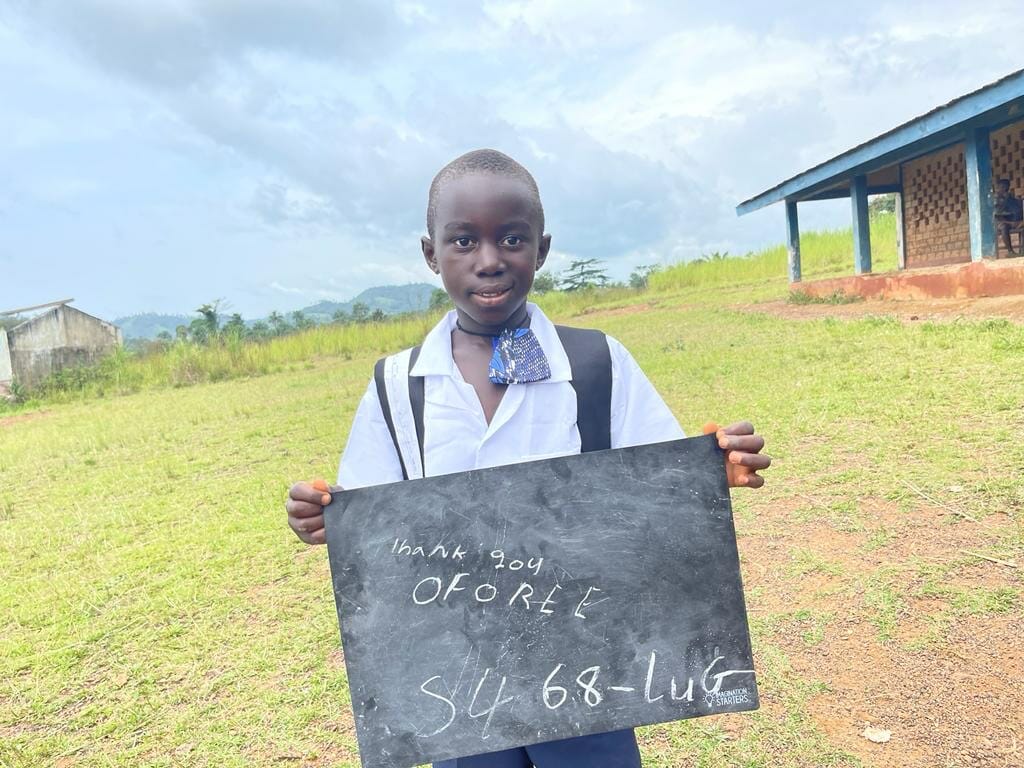 Thank you
OFOREE
S4 68-LuG
IMAGINATION
STARTERS